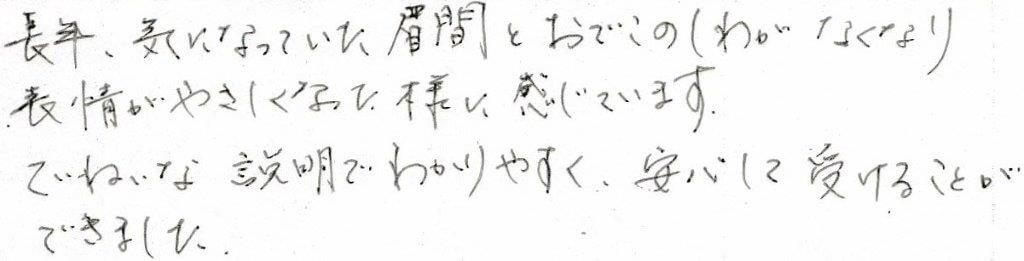 長年、気になっていた眉間とおでこのしわがなくなり
表情がやさしくなった様に感じています.
ていねいな説明でわかりやすく、安心して受けることが
できました.